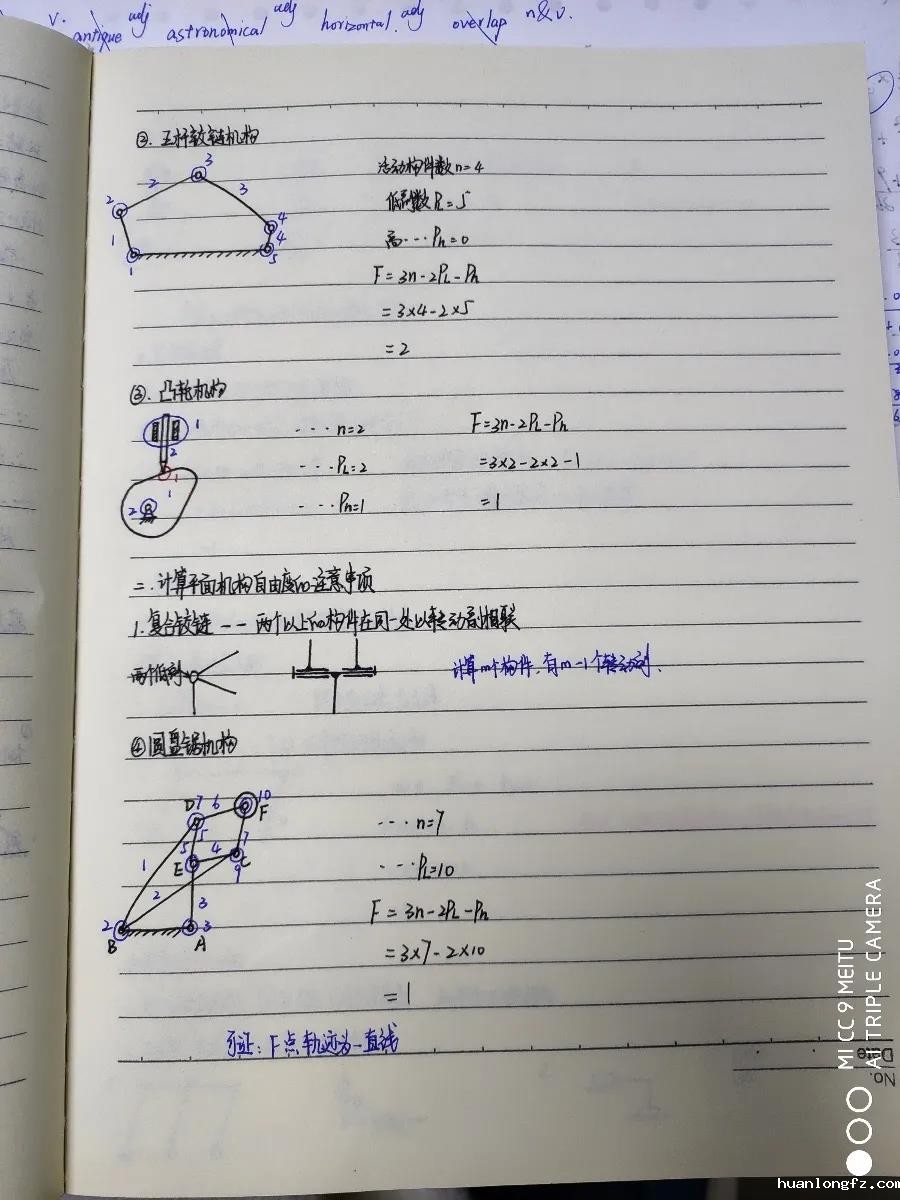 v. antique adj astronomical adj horizontal. adj overlap n&v.
②. 五杆铰链机构
活动构件数 n=4
低副数 PL=5
高··· Ph=0
F=3n-2PL-Ph
=3×4-2×5
=2
③. 凸轮机构
··· n=2
F=3n-2PL-Ph
··· PL=2
=3×2-2×2-1
··· Ph=1
=1
二. 计算平面机构自由度的注意事项
1. 复合铰链 -- 两个以上的构件在同一处以转动副相联
两个低副
计算m个构件, 有m-1个转动副.
④圆盘锯机构
D 7 6 10 F
5 5 4 7
1 E C
9
2
3
2 3
B A
··· n=7
··· PL=10
F=3n-2PL-Ph
=3×7-2×10
=1
可证: F点轨迹为一直线
No.
Date
MI CC 9 MEITU
AI TRIPLE CAMERA
huanlongfz.com